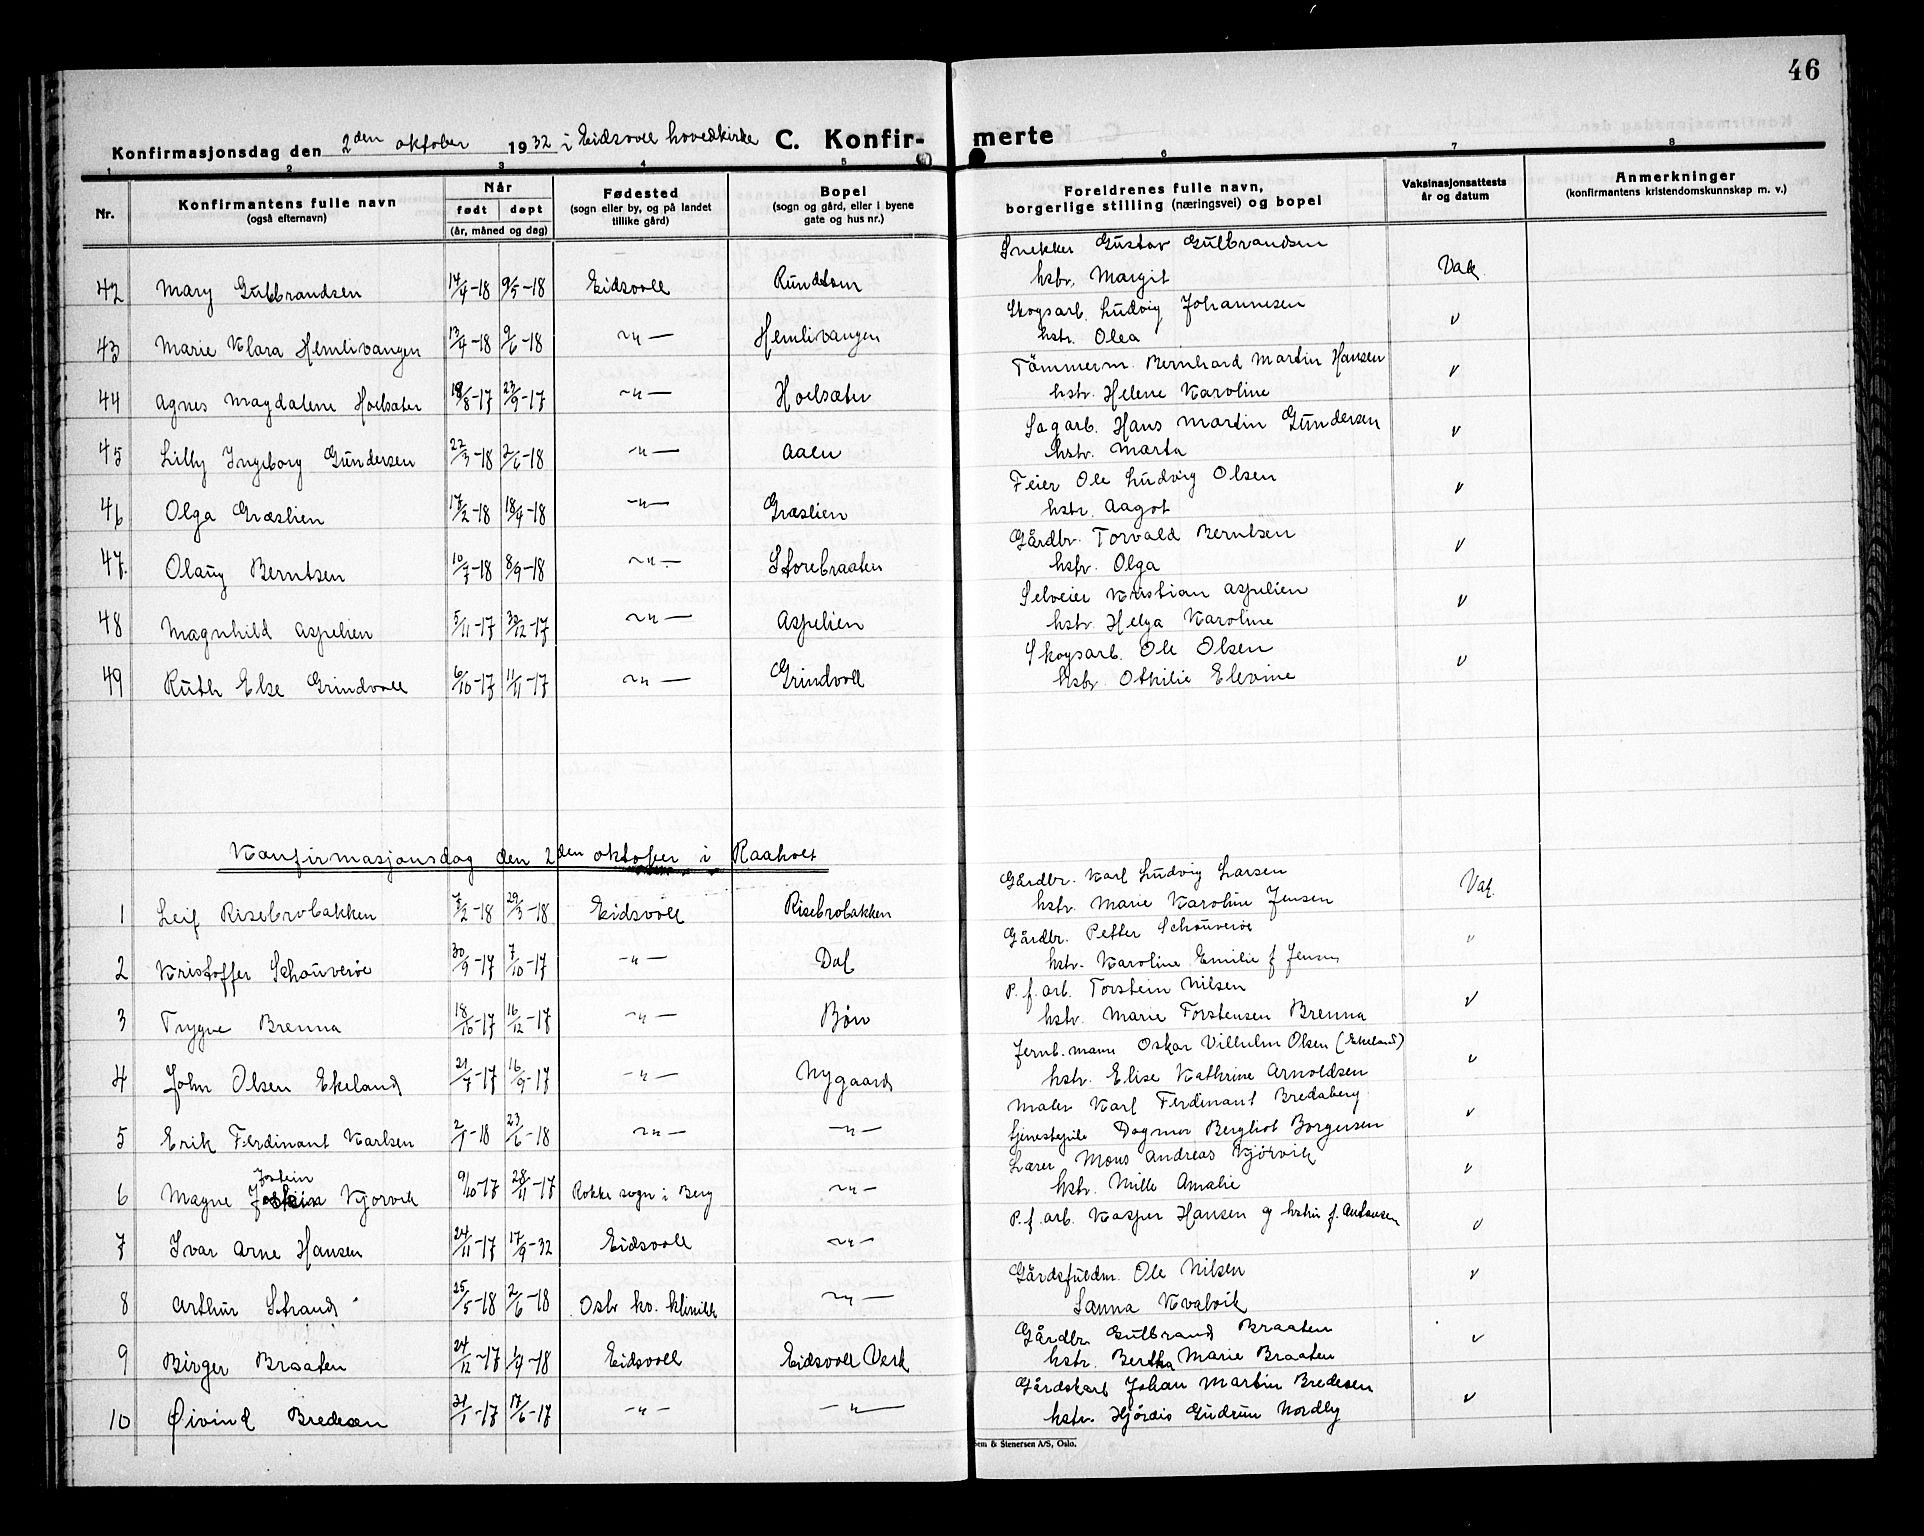 46
Konfirmasjonsdag den 2den oktober 1932 i Eidsvoll hovedkirke C. Konfir- merte
1 2 3 4 5 6 7 8
Nr. Konfirmantens fulle navn (også efternavn) Når født døpt (år, måned og dag) Fødested (sogn eller by, og på landet tillike gård) Bopel (sogn og gård, eller i byene gate og hus nr.) Foreldrenes fulle navn, borgerlige stilling (næringsvei) og bopel Vaksinasjonsattests år og datum Anmerkninger (konfirmantens kristendomskunnskap m. v.)
42 Mary Gulbrandsen 14/4-18 9/5-18 Eidsvoll Rundtom Snekker Gustav Gulbrandsen Vak.
hstr. Margit
43 Marie Klara Hemlivangen 13/4-18 9/6-18 -"- Hemlivangen Skogsarb. Ludvig Johannesen v
hstr. Olea
44 Agnes Magdalene Hoelsæter 18/8-17 23/9-17 -"- Hoelsæter Tömmerm. Bernhard Martin Hansen v
hstr. Helene Karoline
45 Lilly Ingeborg Gundersen 22/3-18 2/6-18 -"- Aalen Sagarb. Hans Martin Gundersen v
hstr. Marta
46 Olga Græslien 17/2-18 18/4-18 -"- Græslien Feier Ole Ludvig Olsen v
hstr. Aagot
47. Olaug Berntsen 10/7-18 8/9-18 -"- Storebraaten Gårdbr. Torvald Berntsen v
hstr. Olga
48 Magnhild Aspelien 5/11-17 30/12-17 -"- Aspelien Selveier Kristian Aspelien v
hstr. Helga Karoline
49 Ruth Else Grindvoll 6/10-17 11/11-17 -"- Grindvoll Skogsarb. Ole Olsen v
hstr. Othilie Elevine
Konfirmasjonsdag den 2den oktober i Raaholt
1 Leif Risebrobakken 7/2-18 29/3-18 Eidsvoll Risebrobakken Gårdbr. Karl Ludvig Larsen Vak.
hstr. Marie Karoline Jensen
2 Kristoffer Schouverøe 30/9-17 7/10-17 -"- Dal Gårdbr. Petter Schouverøe v
hstr. Karoline Emilie f Jensen
3 Trygve Brenna 18/10-17 16/12-17 -"- Bøn P. f. arb. Torstein Nilsen v
hstr. Marie Torstensen Brenna
4 John Olsen Ekeland 21/7-17 16/9-17 -"- Nygaard Jernb. mann Oskar Vilhelm Olsen (Ekeland) v
hstr. Elise Kathrine Arnoldsen
5 Erik Ferdinant Karlsen 2/1-18 23/6-18 -"- -"- Maler Karl Ferdinant Bredaberg v
tjenestepike Dagmar Bergliot Borgersen
6 Magne Jostein Kjørvik 9/10-17 28/11-17 Rokke sogn i Berg -"- Lærer Mons Andreas Kjörvik v
hstr. Mille Amalie
7 Ivar Arne Hansen 24/11-17 17/9-32 Eidsvoll -"- P. f. arb. Kasper Hansen og hstru f. Antonsen v
8 Arthur Strand 25/5-18 2/6-18 Oslo kv. klinikk -"- Gårdsfuldm. Ole Nilsen v
Sanna Kvalvik
9 Birger Braaten 24/12-17 1/4-18 Eidsvoll Eidsvoll Verk Gårdbr. Gulbrand Braaten v
hstr. Bertha Marie Braaten
10 Øivind Bredesen 31/1-17 17/6-17 -"- -"- Gårdskarl Johan Martin Bredesen v
hstr. Hjördis Gudrun Nordby
& Stenersen A/S, Oslo.